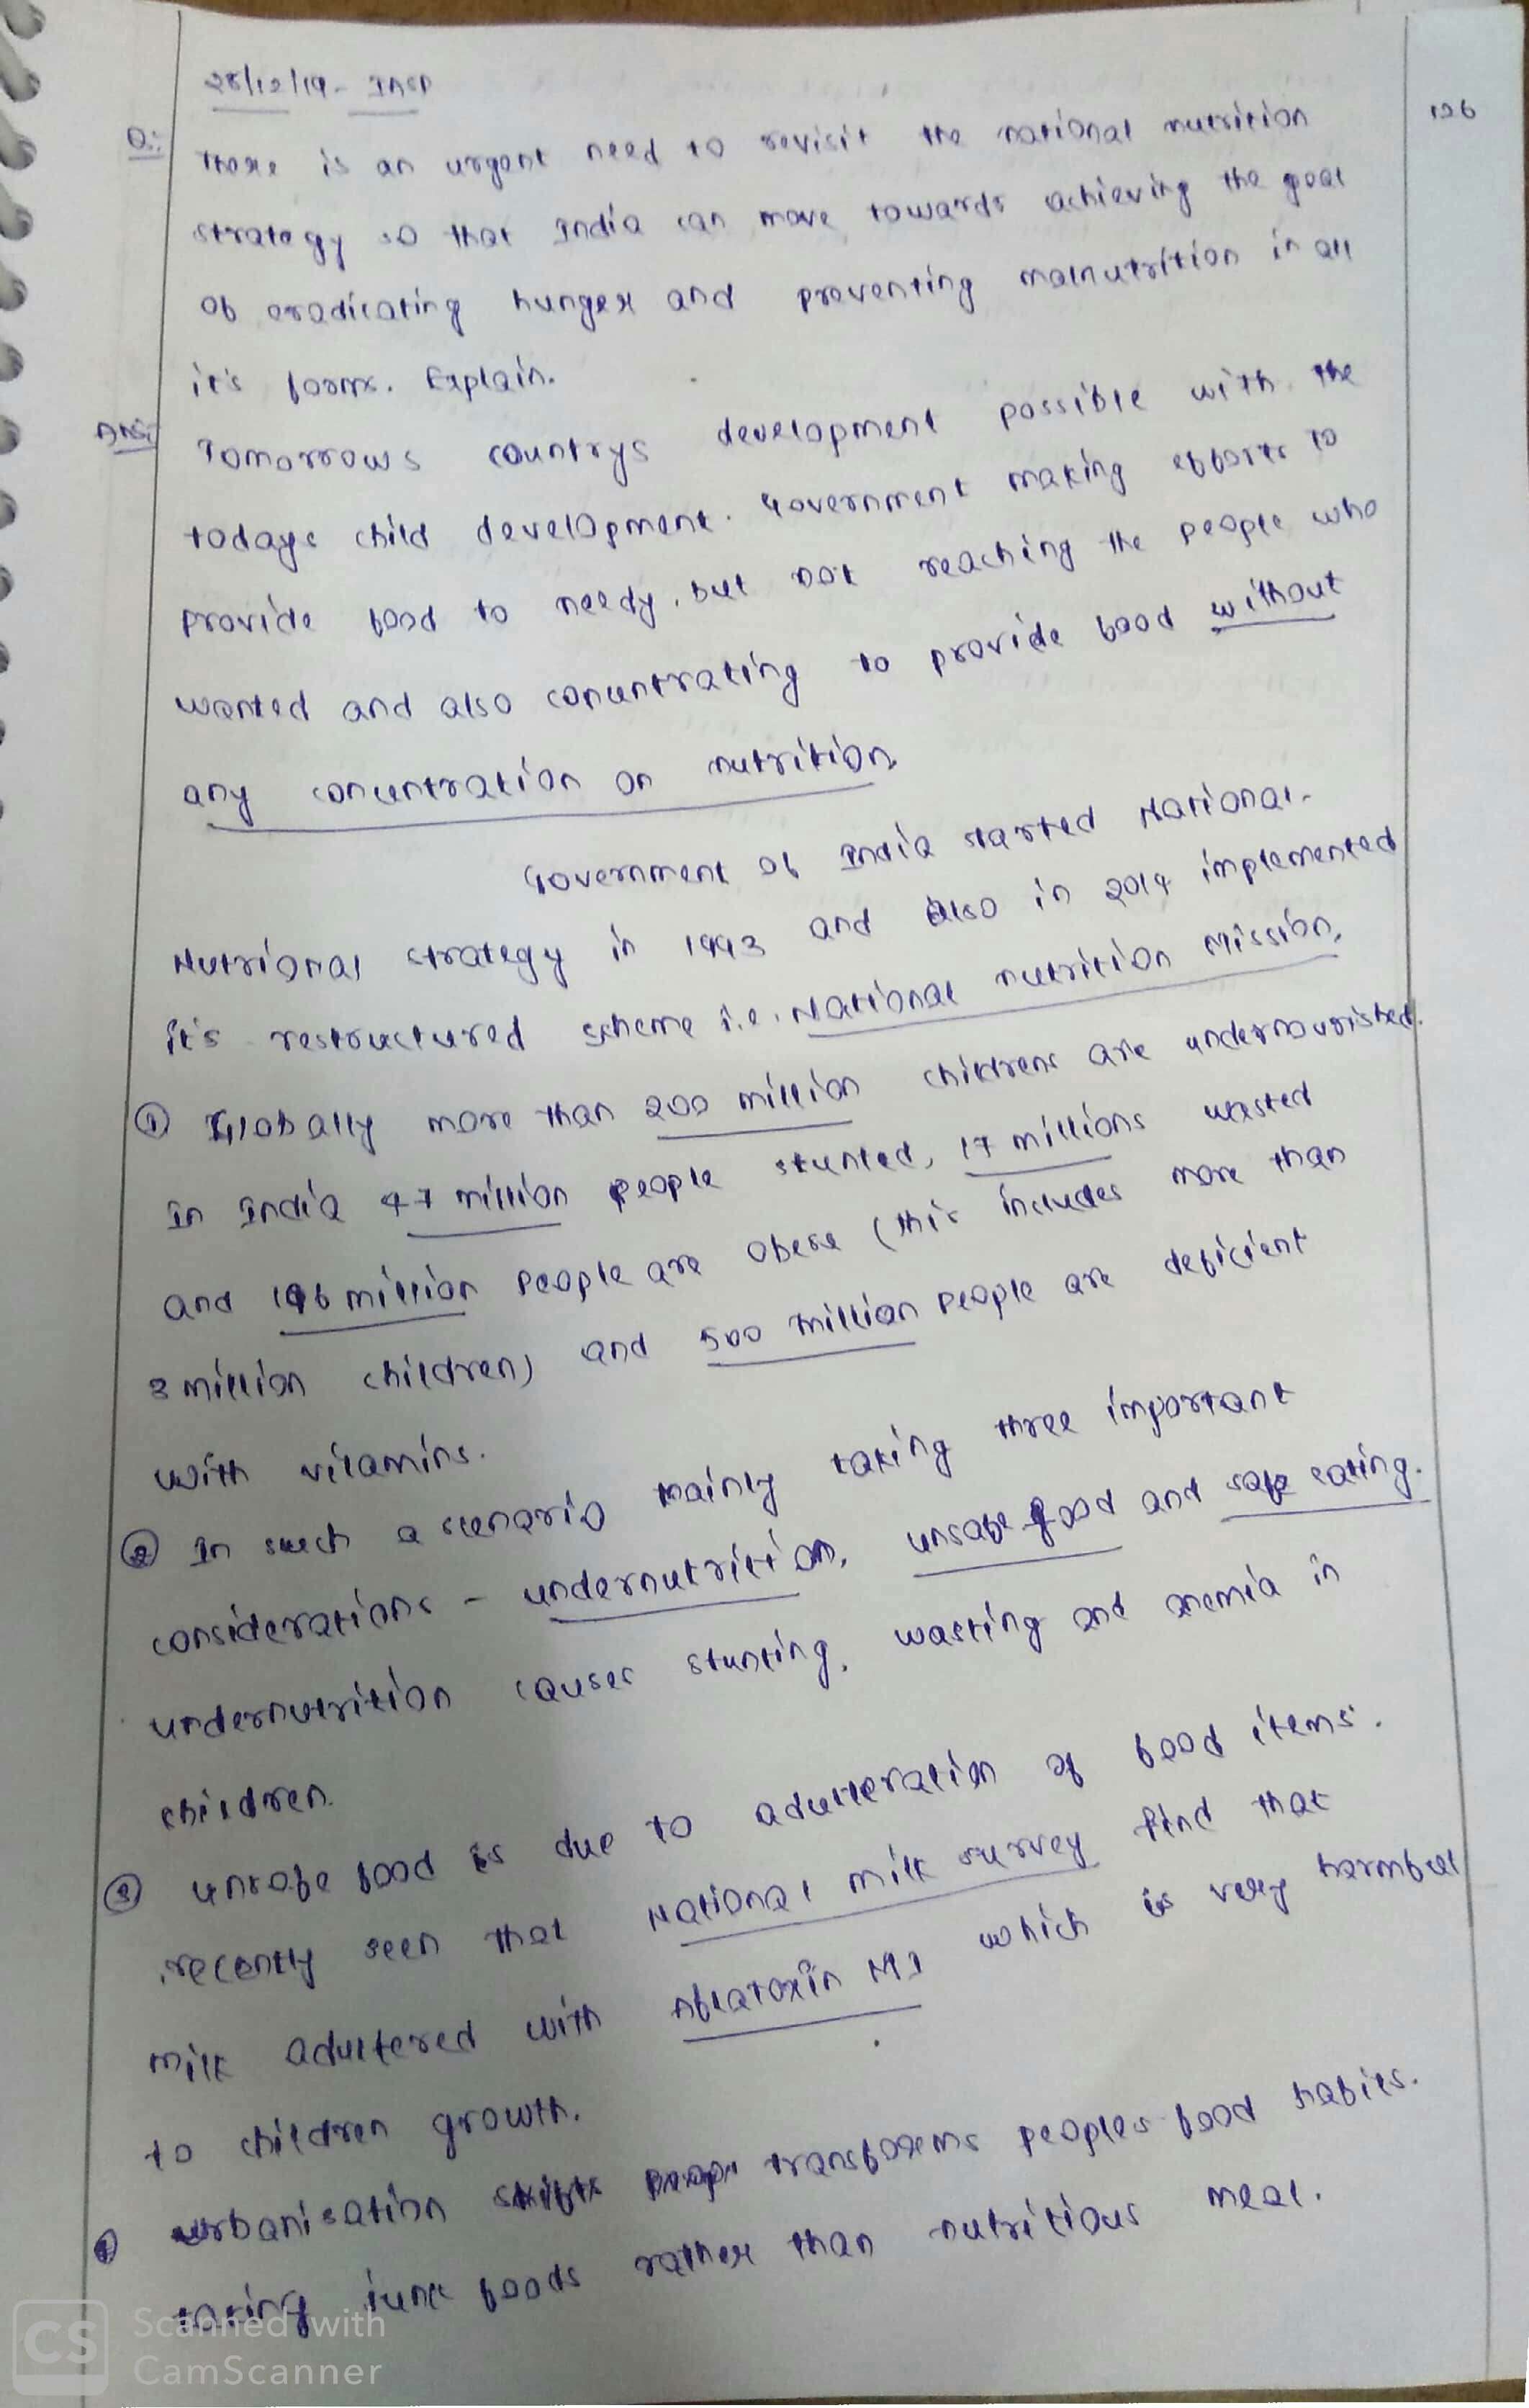 28/12/19 - INSP
126
Q:- There is an urgent need to revisit the national nutrition
strategy so that India can move towards achieving the goal
of eradicating hunger and preventing malnutrition in all
it's forms. Explain.
Ans:- Tomorrows countrys development possible with the
todays child development. Government making efforts to
provide food to needy, but not reaching the people who
wanted and also concentrating to provide food without
any concentration on nutrition.
Government of India started National-
Nutrional strategy in 1993 and also in 2014 implemented
it's restructured scheme i.e. National nutrition Mission.
① Globally more than 200 million childrens are undernourished.
In India 47 million people stunted, 17 millions wasted
and 196 million people are obese (this includes more than
3 million children) and 500 million people are deficient
with vitamins.
② In such a scenario mainly taking three important
considerations - undernutrition, unsafe food and safe eating.
undernutrition causes stunting, wasting and anemia in
children.
③ unsafe food is due to adulteration of food items.
recently seen that National milk survey find that
milk adultered with Aflatoxin M1 which is very harmful
to children growth.
urbanisation transforms peoples food habits.
taking junk foods rather than nutritious meal.
CS Scanned with
CamScanner